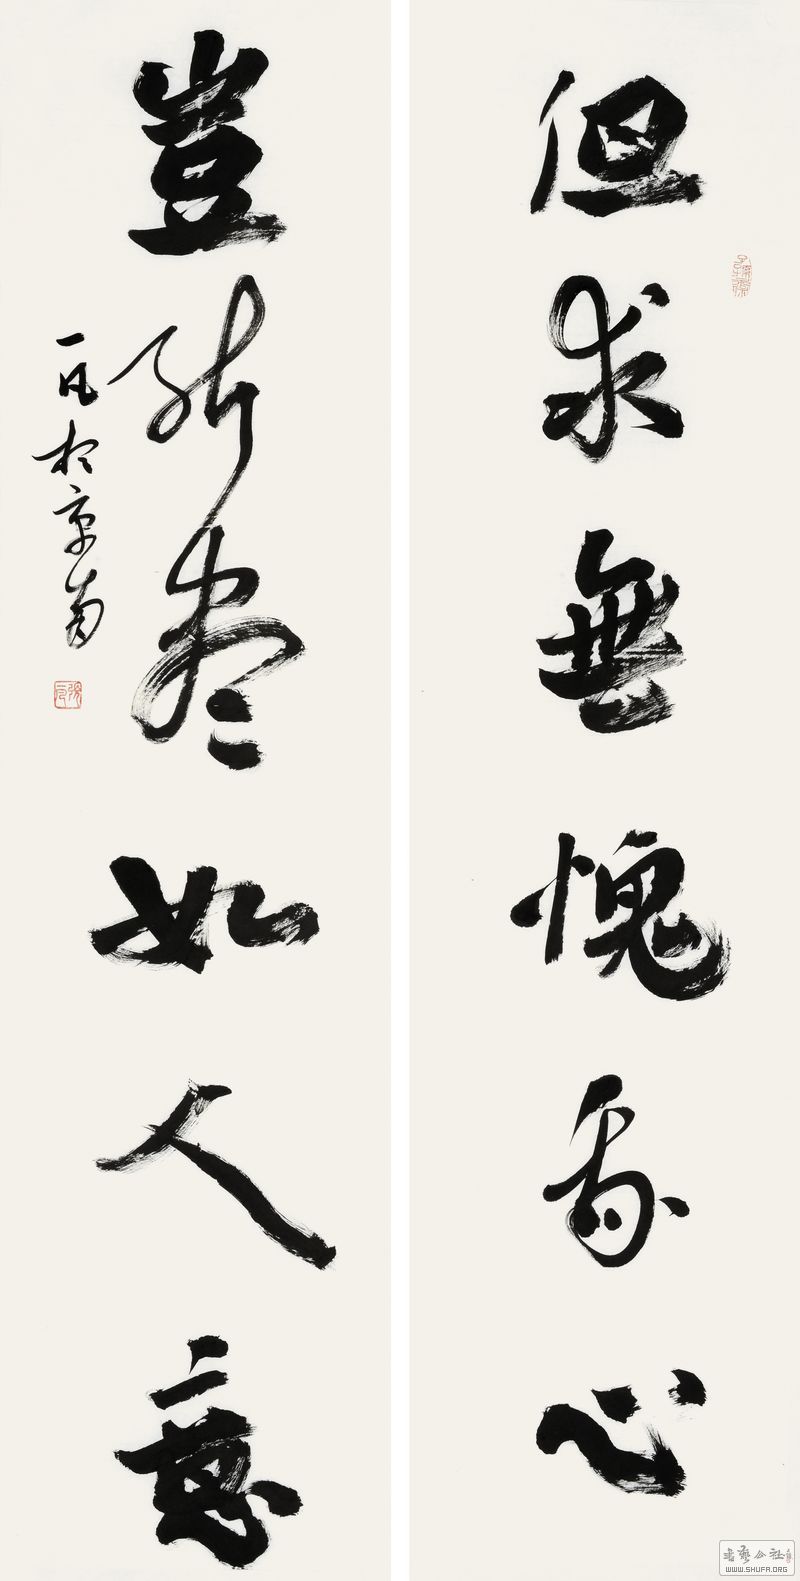 但求無愧我心
豈能盡如人意
一凡於京南
書藝公社
WWW.SHUFA.ORG